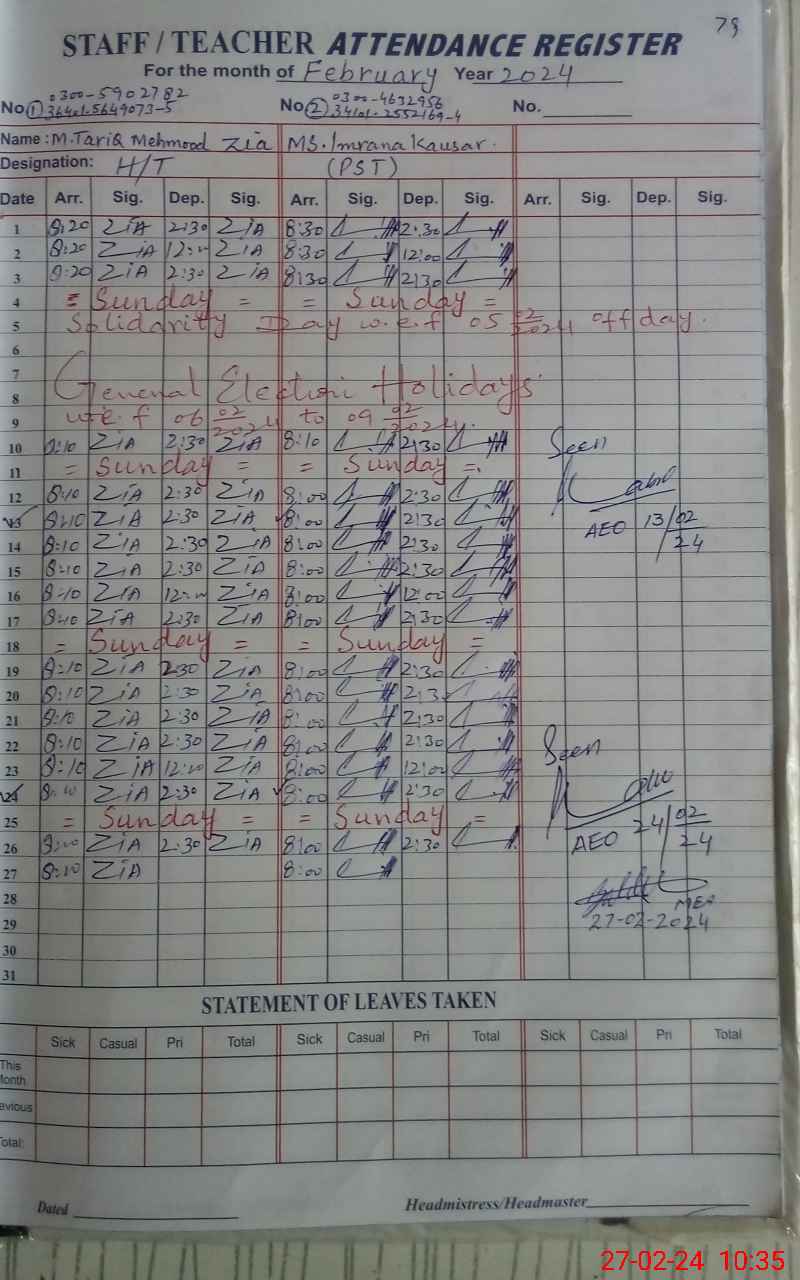 79
STAFF / TEACHER ATTENDANCE REGISTER
For the month of February Year 2024
0300-5902782 0300-4632956
No. ① 36401-5649073-5 No. ② 34101-2552169-4 No.
Name : M.Tariq Mehmood Zia MS. Imrana Kausar.
Designation: H/T (PST)
Date Arr. Sig. Dep. Sig. Arr. Sig. Dep. Sig. Arr. Sig. Dep. Sig.
1 8:20 ZiA 2:30 ZiA 8:30 2:30
2 8:20 ZiA 12:00 ZiA 8:30 12:00
3 8:20 ZiA 2:30 ZiA 8:30 2:30
4 = Sunday = = Sunday =
5 Solidarity Day w.e.f 05 02/2024 off day.
6
7
8 General Election Holidays
9 w.e.f 06 02/2024 to 09 02/2024.
10 8:10 ZiA 2:30 ZiA 8:10 2:30 Seen
11 = Sunday = = Sunday =.
12 8:10 ZiA 2:30 ZiA 8:00 2:30
13 8:10 ZiA 2:30 ZiA 8:00 2:30 AEO 13/02/24
14 8:10 ZiA 2:30 ZiA 8:00 2:30
15 8:10 ZiA 2:30 ZiA 8:00 2:30
16 8:10 ZiA 12:00 ZiA 8:00 12:00
17 8:10 ZiA 2:30 ZiA 8:00 2:30
18 = Sunday = = Sunday =
19 8:10 ZiA 2:30 ZiA 8:00 2:30
20 8:10 ZiA 2:30 ZiA 8:00 2:3
21 8:10 ZiA 2:30 ZiA 8:00 2:30
22 8:10 ZiA 2:30 ZiA 8:00 2:30 Seen
23 8:10 ZiA 12:00 ZiA 8:00 12:00
24 8:10 ZiA 2:30 ZiA 8:00 2:30
25 = Sunday = = Sunday =
26 8:10 ZiA 2:30 ZiA 8:00 2:30 AEO 24/02/24
27 8:10 ZiA 8:00
28 MEA
29 27-02-2024
30
31
STATEMENT OF LEAVES TAKEN
Sick Casual Pri Total Sick Casual Pri Total Sick Casual Pri Total
This
Month
evious
Total:
Dated Headmistress/Headmaster
27-02-24 10:35